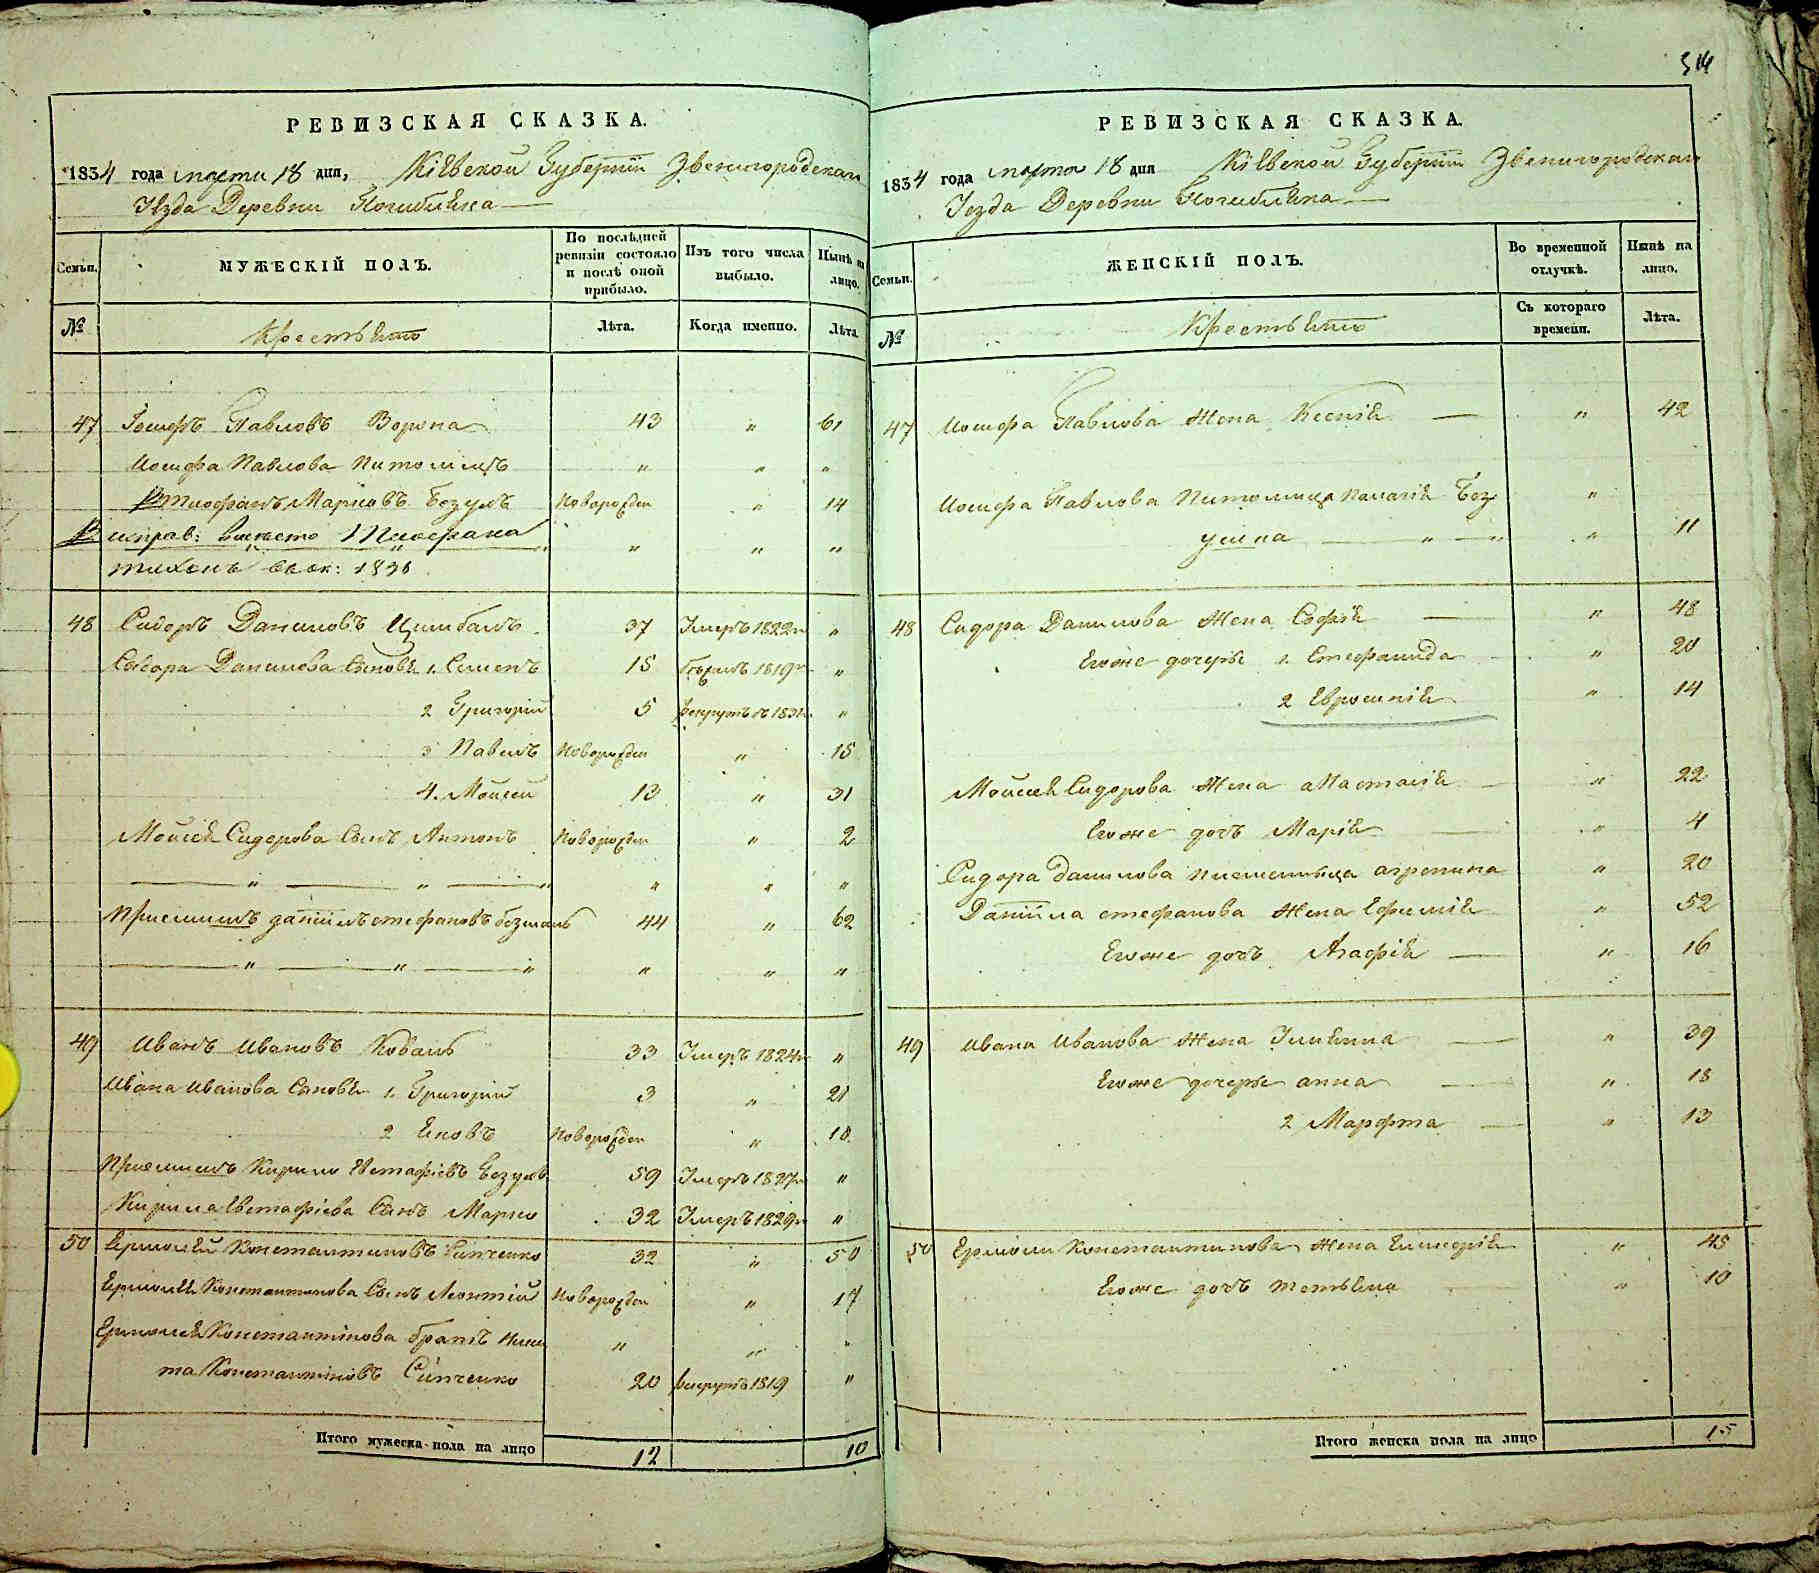 314
РЕВИЗСКАЯ СКАЗКА.
1834 года марта 18 дня, Кіевской Губерніи Звенигородскаго
Уезда Деревни Погиблѣка
Семьи. МУЖЕСКІЙ ПОЛЪ. По послѣдней ревизіи состояло и послѣ оной прибыло. Изъ того числа выбыло. Нынѣ на лицо.
№ Крестьянъ Лѣта. Когда именно. Лѣта.
47 Іосифъ Павловъ Ворона 43 " 61
Иосифа Павлова Питомецъ " " "
Марковъ Безумъ Новорожден " 14
исправ: вместо
" " "
Тихонъ 1838
48 Сидоръ Даниловъ Цимбалъ 37 Умеръ 1822г "
Сидора Данилова Сыновья 1. Семенъ 15 1819г "
2 Григорій 5 рекрутъ въ 1831г "
3 Павелъ Новорожден " 15
4. Моисей 13 " 31
Моисея Сидорова Сынъ Антонъ Новорожден " 2
" " " " "
Приемышъ Даніилъ Стефановъ 44 " 62
" " " " " "
49 Иванъ Ивановъ Коваль 33 Умеръ 1824г "
Ивана Иванова Сыновья 1. Григорій 3 " 21
2 Яковъ Новорожден " 18
Приемышъ Кирило Евстафіевъ Безумъ 59 Умеръ 1827г "
Кирила Евстафіева Сынъ Марко 32 Умеръ 1829г "
50 Ермолай Константиновъ Синченко 32 " 50
Ермолая Константинова Сынъ Леонтій Новорожден " 17
Ермолая Константинова братъ Ники " " "
та Константиновъ Синченко 20 рекрутъ 1819 "
Итого мужеска пола на лицо 12 10
РЕВИЗСКАЯ СКАЗКА.
1834 года марта 18 дня Кіевской Губерніи Звенигородскаго
Уезда Деревни Погиблѣка
Семьи. ЖЕНСКІЙ ПОЛЪ. Во временной отлучкѣ. Нынѣ на лицо.
№ Крестьянъ Съ котораго времени. Лѣта.
47 Иосифа Павлова Жена Ксенія " 42
Иосифа Павлова Питомица Палагія Без "
умна " " " 11
48 Сидора Данилова Жена Софія " 48
Егоже дочери 1. Стефанида " 20
2 Евросинія " 14
Моисея Сидорова Жена Настасія " 22
Егоже дочь Марія " 4
Сидора Данилова племеница агрепина " 20
Даніила стефанова Жена Ефимія " 52
Егоже дочь Агафія " 16
49 Ивана Иванова Жена Ульяна " 39
Егоже дочери анна " 18
2 Марфта " 13
50 Ермоли Константинова Жена Гликерія " 45
Егоже дочь тетьяна " 10
Итого женска пола на лицо 15